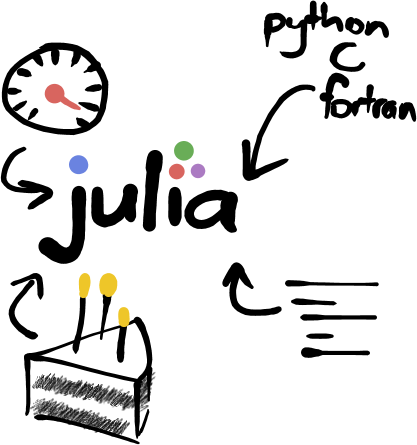 python
C
fortran
julia